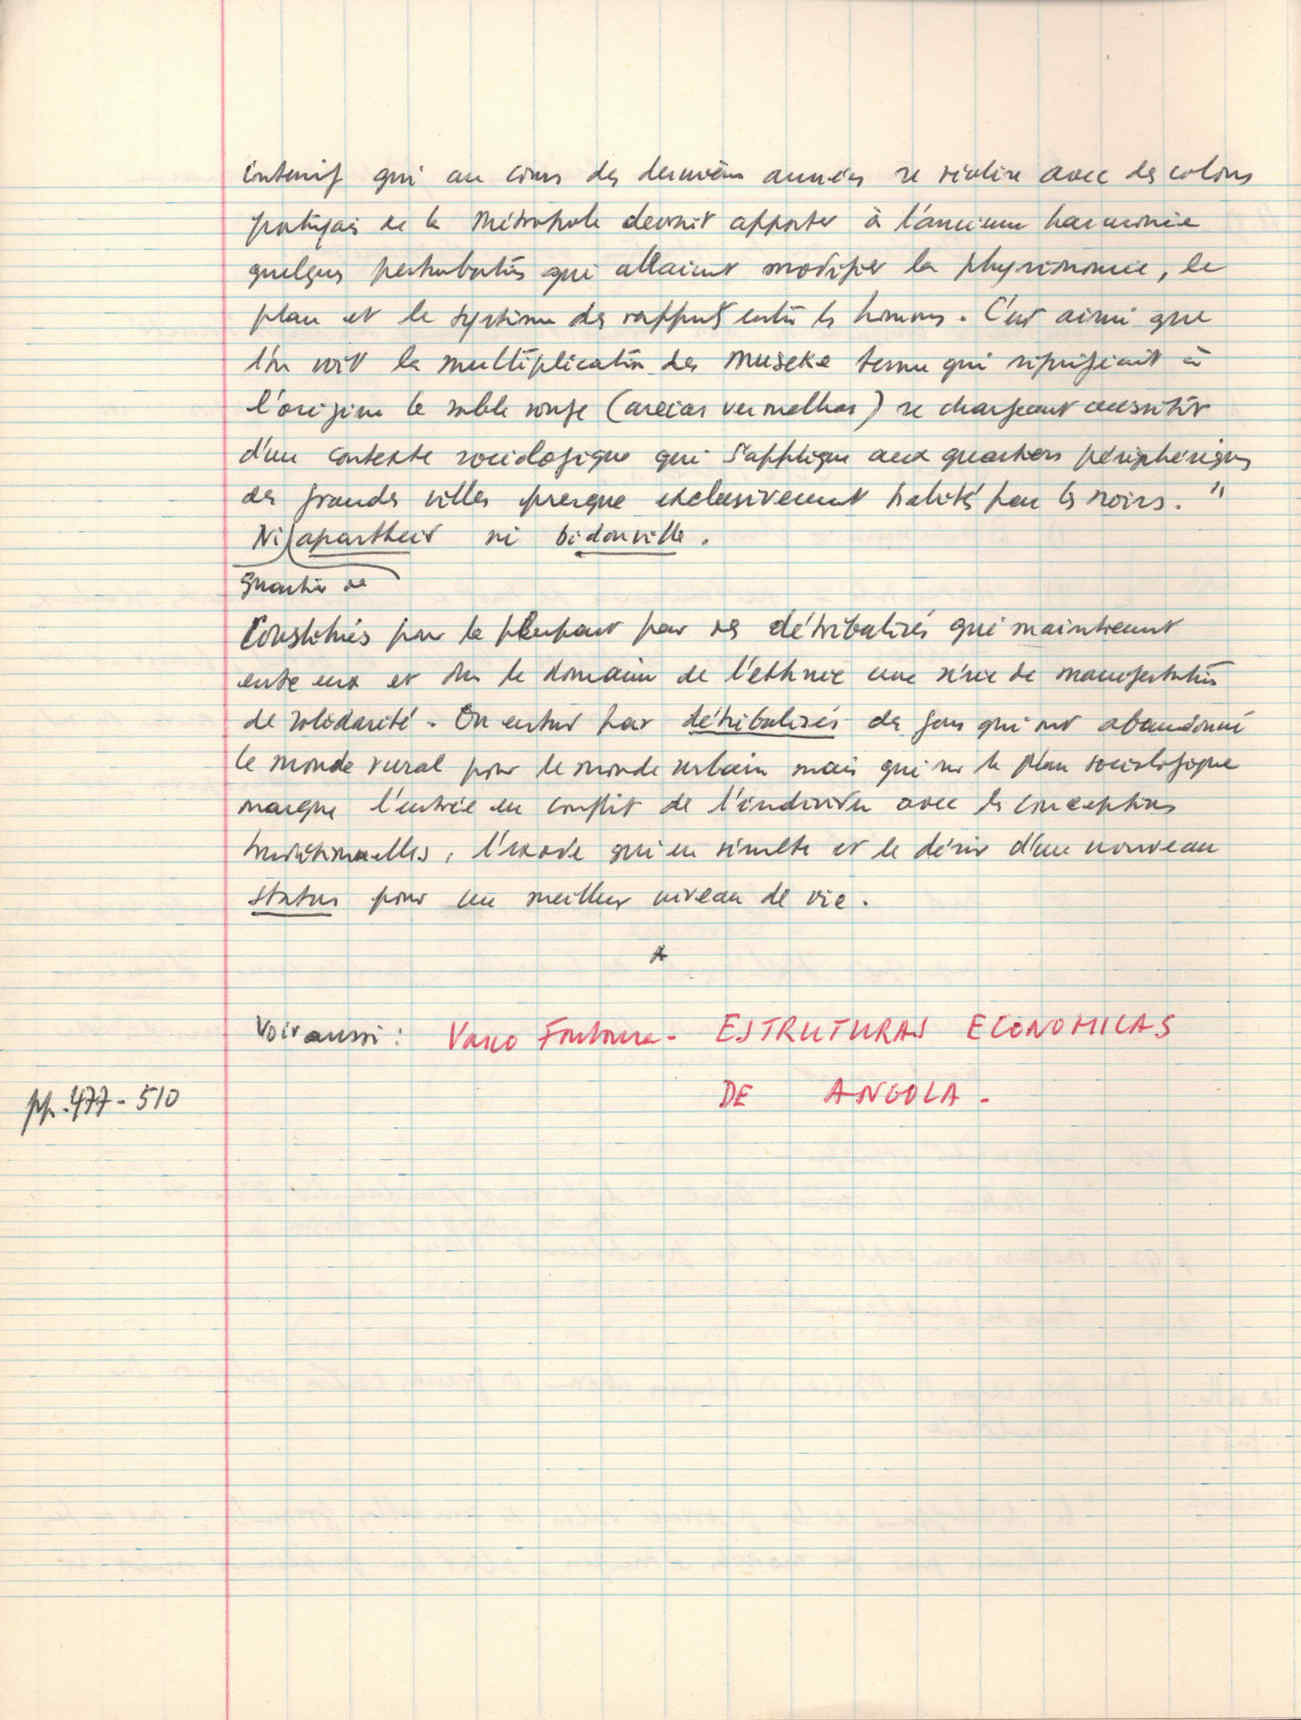 intensif qui au cours des dernières années se réalise avec des colons
portugais de la Métropole devait apporter à l'ancienne harmonie
quelques perturbations qui allaient modifier la physionomie, le
plan et le système des rapports entre les hommes. C'est ainsi que
l'on voit la multiplication des museke terme qui signifiait à
l'origine le sable rouge (areias vermelhas) se chargeant ensuite
d'un contexte sociologique qui s'applique aux quartiers périphériques
des grandes villes presque exclusivement habités par les noirs."
Ni apartheid ni bidonville.
Quartier de
Constitués pour la plupart par des détribalisés qui maintiennent
entre eux et dans le domaine de l'ethnie une série de manifestations
de solidarité. On entend par détribalisés des gens qui ont abandonné
le monde rural pour le monde urbain mais qui sur le plan sociologique
marque l'entrée en conflit de l'individu avec les conceptions
traditionnelles, l'exode qui en résulte et le désir d'un nouveau
status pour un meilleur niveau de vie.
*
Voir aussi: Vasco Fortuna - ESTRUTURAS ECONOMICAS
DE ANGOLA -
pp. 477 - 510